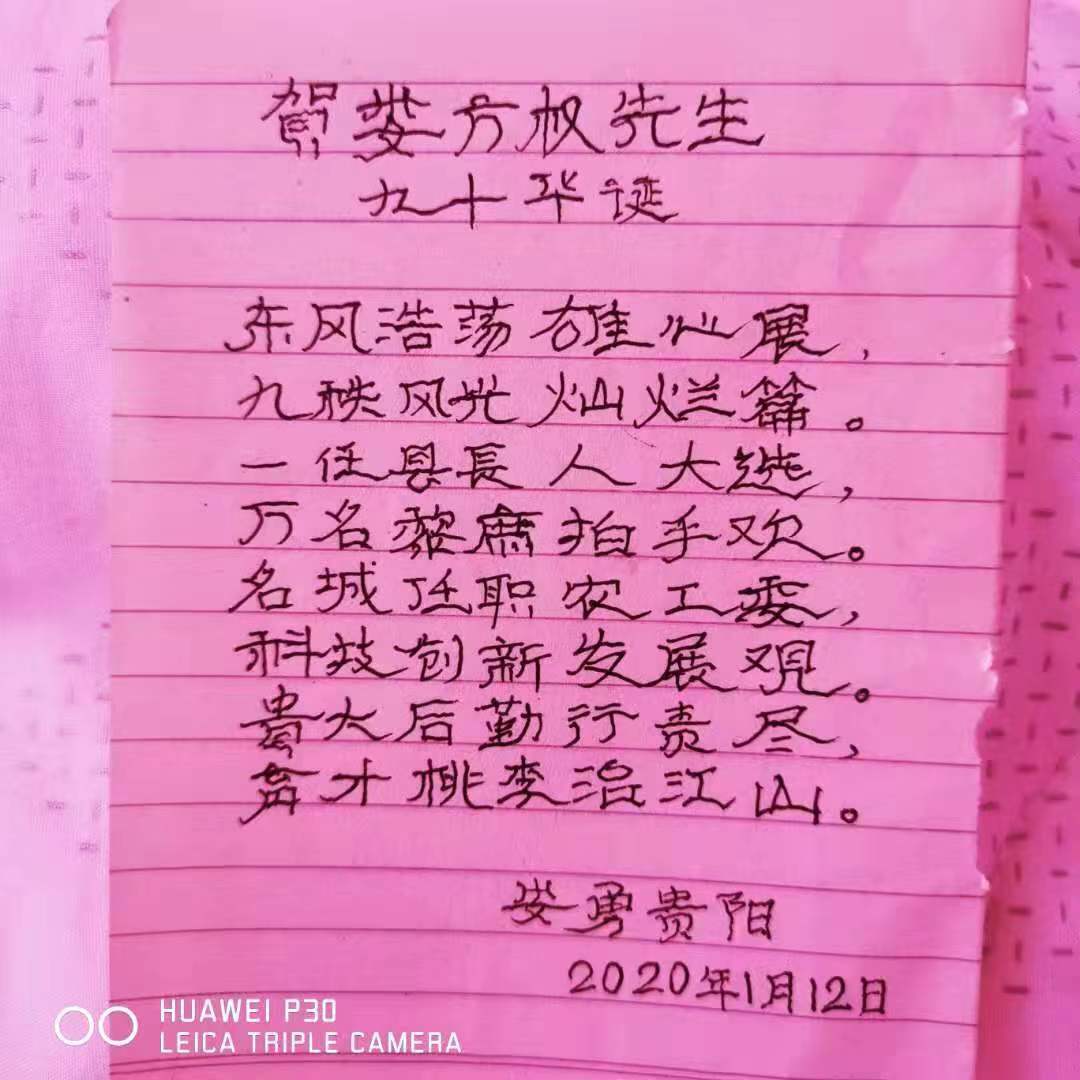 賀娄方权先生
九十华诞
东风浩荡雄心展，
九秩风光灿烂篇。
一任县長人大选，
万名黎庶拍手欢。
名城迁职农工委，
科技创新发展观。
貴大后勤行责尽，
育才桃李治江山。
娄勇贵阳
2020年1月12日
HUAWEI P30
LEICA TRIPLE CAMERA